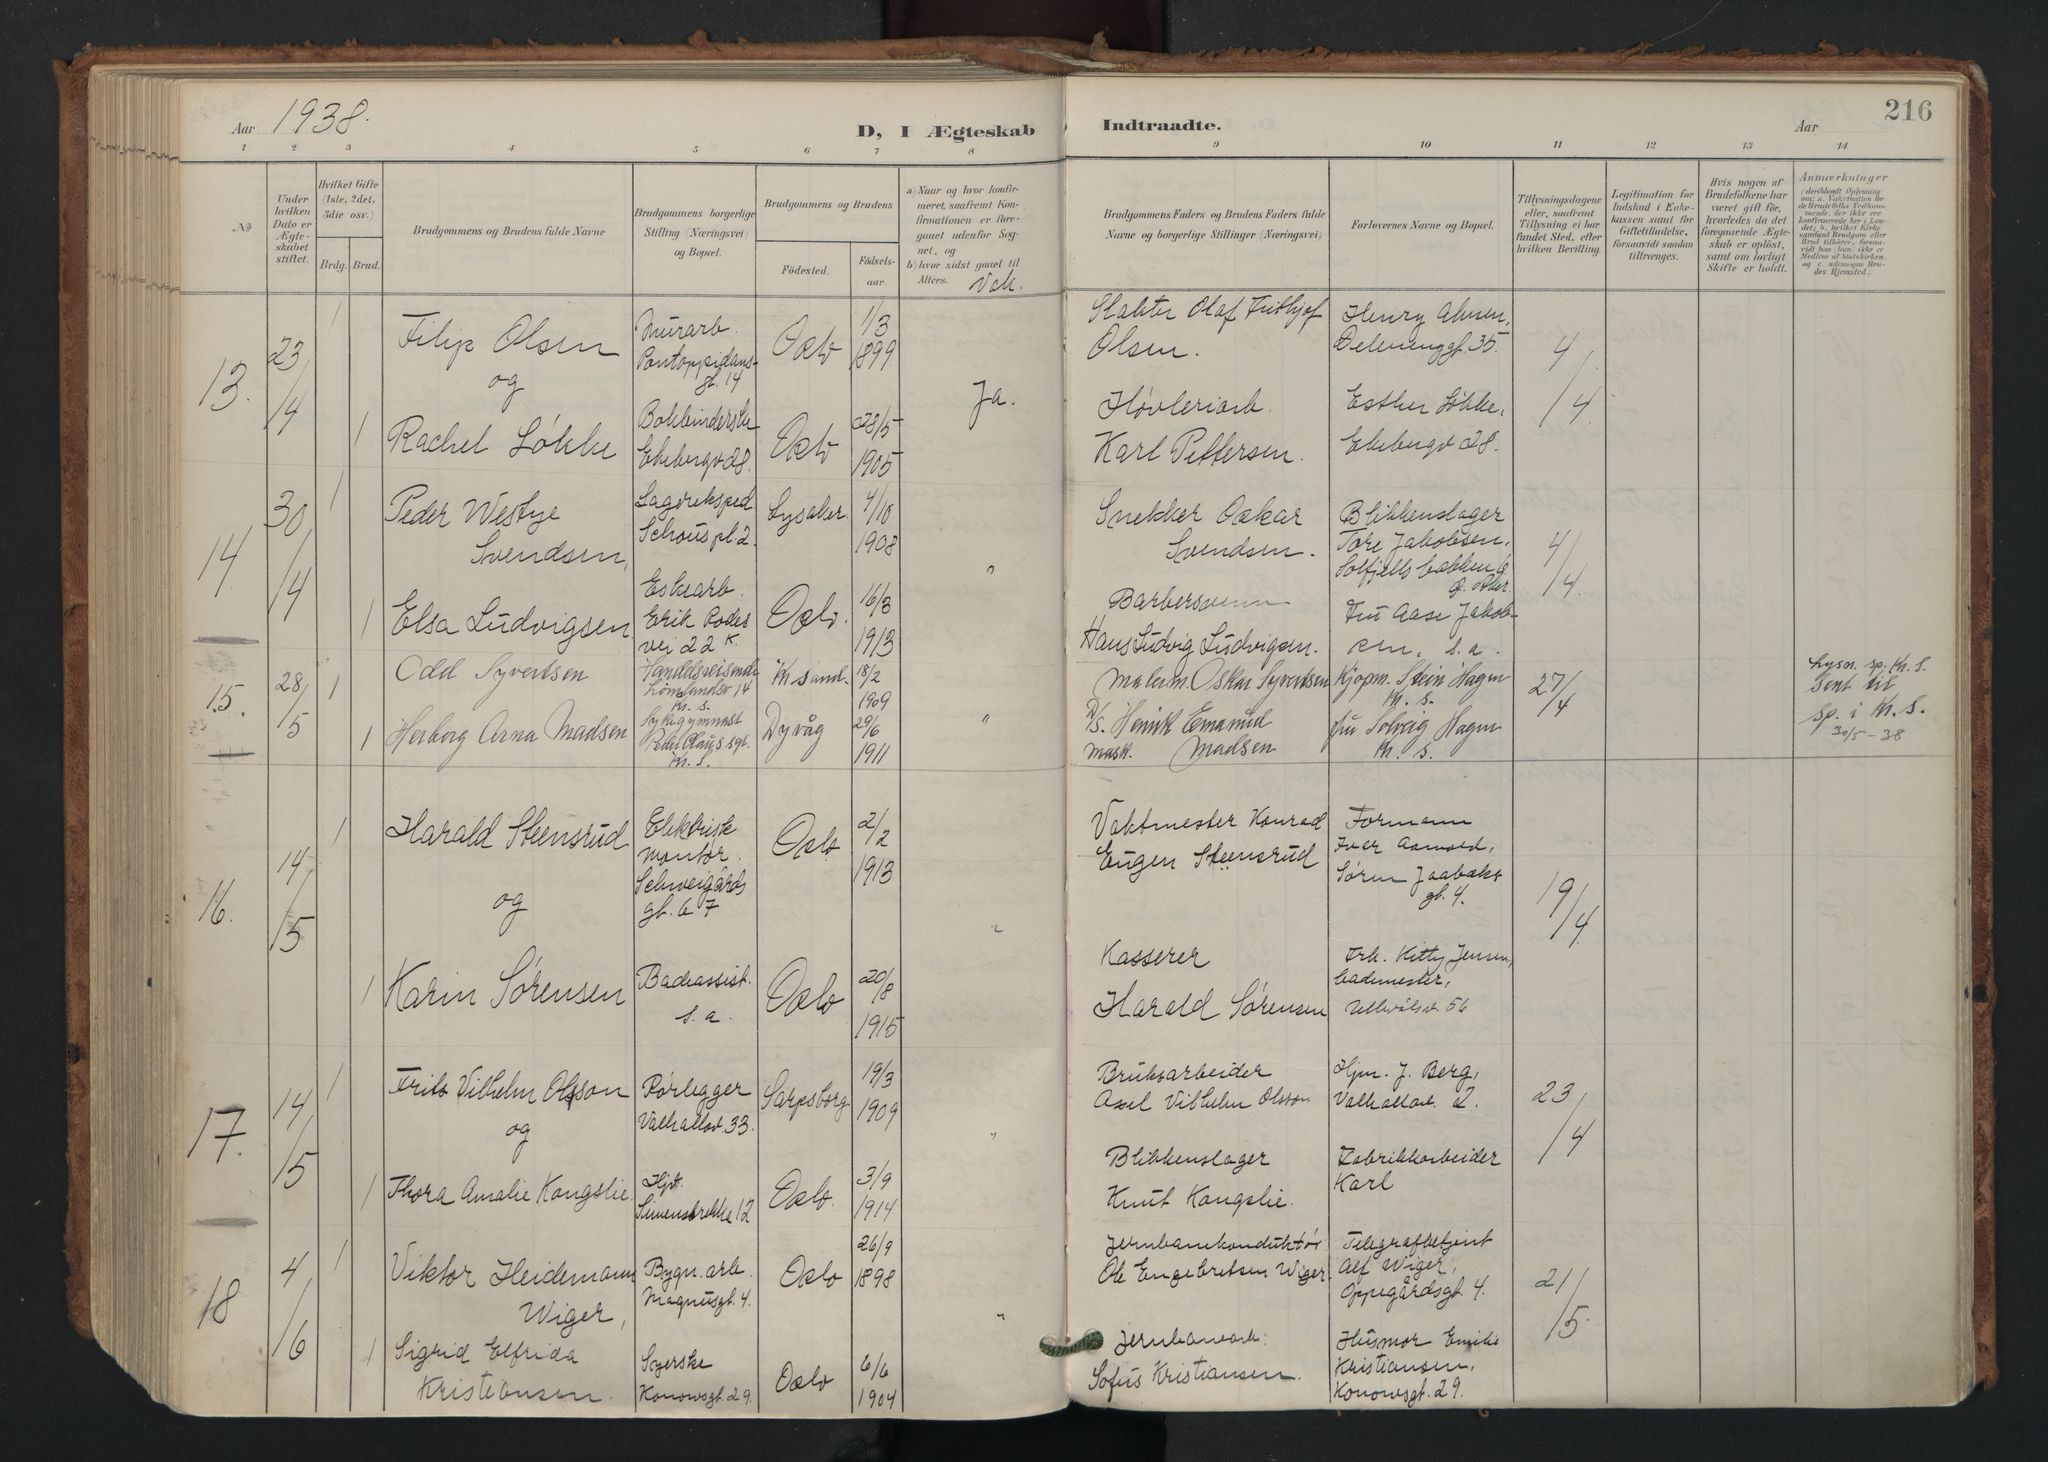 Aar 1938.
D, I Ægteskab
Indtraadte.
Aar
216
1 2 3 4 5 6 7 8 9 10 11 12 13 14
No
Under hvilken Dato er Ægteskabet stiftet.
Hvilket Gifte (1ste, 2det, 3die osv.)
Brdg. Brud.
Brudgommens og Brudens fulde Navne
Brudgommens borgerlige Stilling (Næringsvei) og Bopæl.
Brudgommens og Brudens
Födested.
Födselsaar.
a) Naar og hvor konfirmeret, saafremt Konfirmationen er foregaaet udenfor Sognet, og
b) hvor sidst gaaet til Alters.
Vak.
Brudgommens Faders og Brudens Faders fulde Navne og borgerlige Stillinger (Næringsvei)
Forlovernes Navne og Bopæl.
Tillysningsdagene eller, saafremt Tillysning ei har fundet Sted, efter hvilken Bevilling.
Legitimation for Indskud i Enkekassen samt for Giftetilladelse, forsaavidt saadan tiltrænges.
Hvis nogen af Brudefolkene har været gift för, hvorledes da det foregaaende Ægteskab er oplöst, samt om lovligt Skifte er holdt.
Anmærkninger
13. 23/4 1 Filip Olsen Murarb. Pontoppidansgt. 14 Oslo 1/3 1899
Slakter Olaf Frithjof Olsen. Henry Ahnsen, Delenenggt. 35. 4/4
og
Ja.
1 Rachel Løkke Bokbinderske Ekebergv 28. Oslo 28/5 1905
Høvleriarb. Karl Pettersen. Esther Løkke, Ekebergv 28.
14. 30/4 1 Peder Westye Svendsen, Lagerekspied Schous pl. 2. Lysaker. 4/10 1908
Snekker Oskar Svendsen. Blikkenslager Tore Jakobsen, Solfjellsbakken 6 Ø. Aker. 4/4
"
1 Elsa Ludvigsen Eskearb. Erik Rodes vei 22 K Oslo. 16/3 1913
Barbersvenn Hans Ludvig Ludvigsen. Fru Aase Jakobsen, s. a.
15. 28/5 1 Odd Syvertsen Handelsreisende Lømslandsv 14 Kr. s. Kr sand. 18/2 1909
Malerm. Oskar Syvertsen Kjøpm. Stein Hagen Kr. s. 27/4
Lysn. sp. Kr. S. Sent til sp. i Kr. S. 30/5-38
1 Herborg Arna Madsen Sykegymnast Peder Claus sgt. Kr. S. Dyvåg 29/6 1911 "
D/s. mask. Henrik Emanuel Madsen fru Solveig Hagen Kr. s.
16. 14/5 1 Harald Steensrud Elektrisk montør. Schweigårds gt. 67 Oslo 2/2 1913
Vaktmester Konrad Eugen Steensrud Formann Iver Aamold, Søren Jaabæks gt. 4. 19/4
og
"
1 Karin Sørensen Badeassist. s. a. Oslo 20/8 1915
Kasserer Harald Sørensen Frk. Kitty Jensen, bademester, Ullevålsv. 56
17. 14/5 1 Frits Vilhelm Olsson Rørlegger Valhallav. 33. Sarpsborg 19/3 1909
Bruksarbeider Axel Vilhelm Olsson Hjm. J. Berg, Valhallav. 2. 23/4
og
"
1 Thora Amalie Kongslie. Hjv. Simensbrekka 12 Oslo. 3/9 1914
Blikkenslager Knut Kongslie. Fabrikkarbeider Karl
18 4/6 1 Viktor Heidemann Wiger, Bygn. arb. Magnusgt. 4. Oslo 26/9 1898
Jernbanekonduktør Ole Engebretsen Wiger. Telegrafbetjent Alf Wiger, Oppegårdsgt. 4. 21/5
"
1 Sigrid Elfrida Kristiansen. Syerske Konowsgt. 29. Oslo 6/6 1904
Jernbanearb. Sofus Kristiansen. Husmor Emilie Kristiansen, Konowsgt. 29.